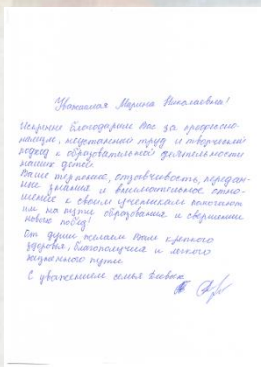 Уважаемая Марина Николаевна!
Искренне благодарим Вас за профессио-
нализм, неустанный труд и творческий
подход к образовательной деятельности
наших детей.
Ваше терпение, отзывчивость, передан-
ные знания и внимательное отно-
шение к своим ученикам помогают
им на пути образования и свершении
нового побед!
От души желаем Вам крепкого
здоровья, благополучия и легкого
жизненного пути.
С уважением семья